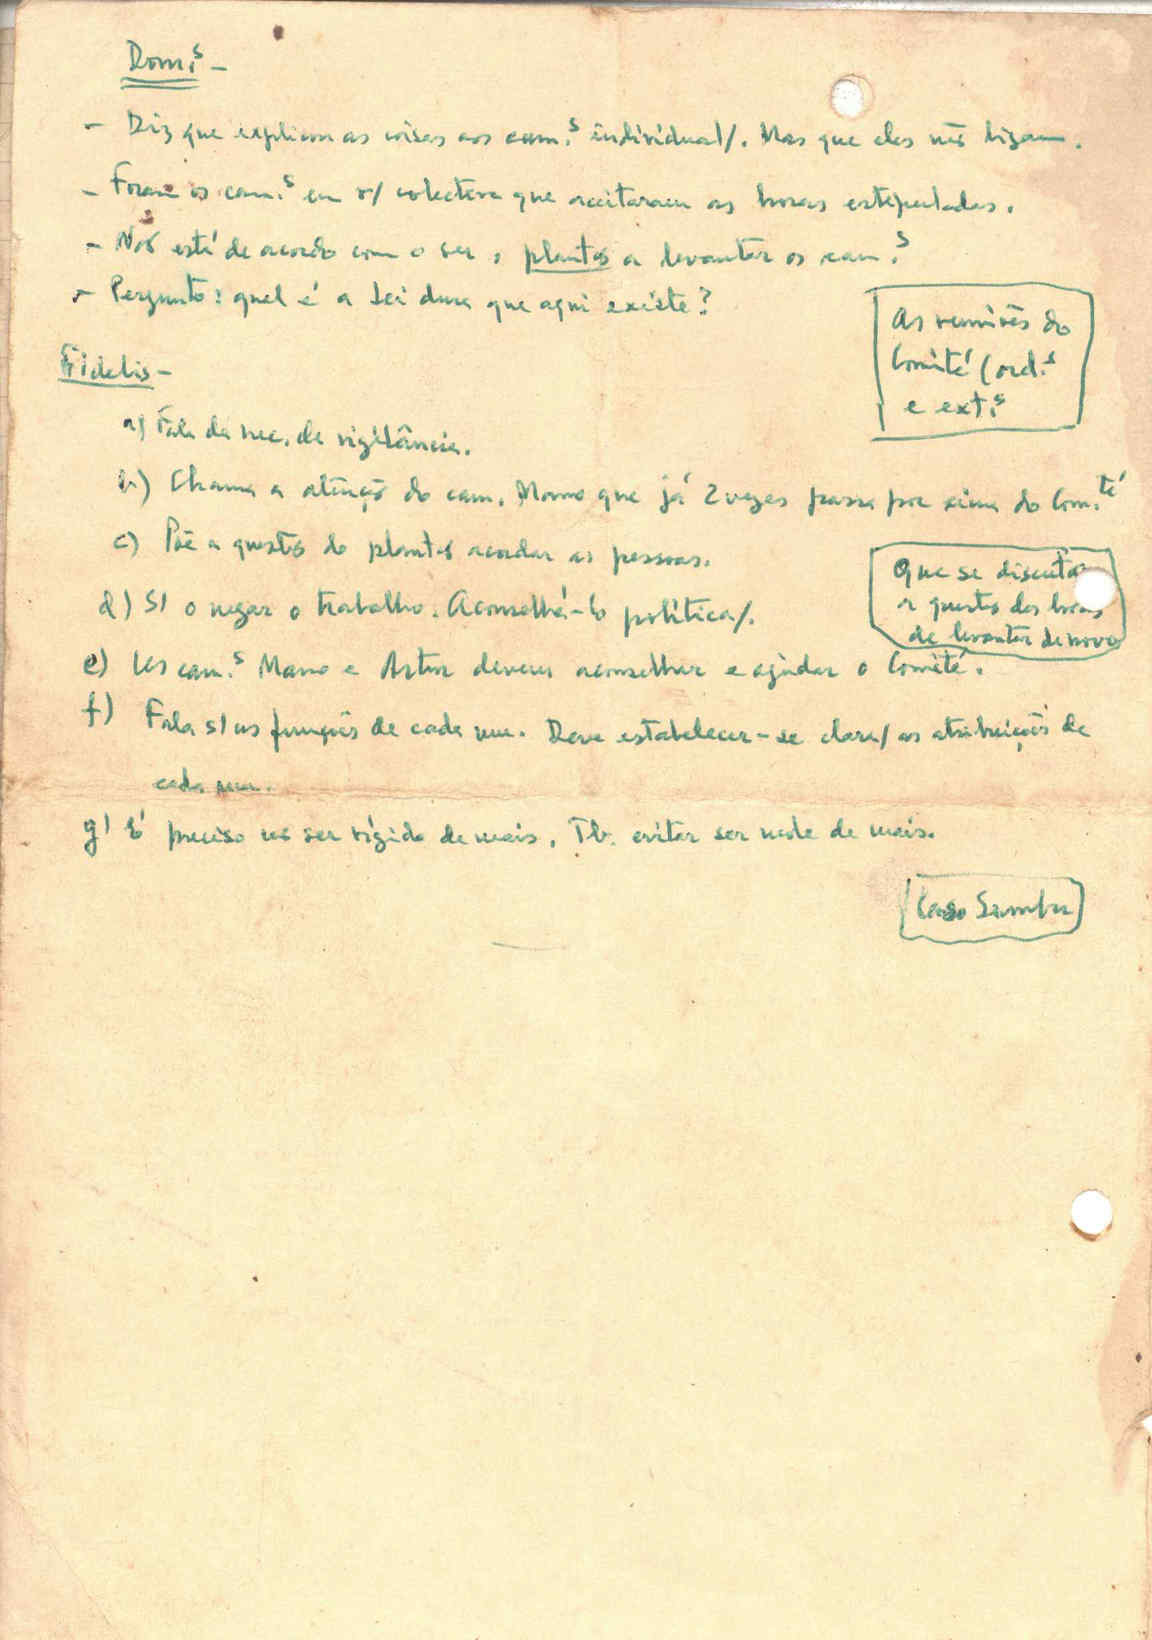 Dom.s -
- Diz que explicou as coisas aos cam.s individual/. Mas que eles não ligam.
- Foram os cam.s em r/ colectiva que aceitaram as horas estipuladas.
- Não está de acordo com o ser o plantão a levantar os cam.s
- Pergunto: qual é a lei dura que aqui existe?
As reuniões do
Comité (ord.s
e ext.s
Fidelis -
a) Fala da nec. de vigilância.
b) Chama a atenção do cam. Mano que já 2 vezes passa por cima do Com.té
c) Põe a questão do plantão acordar as pessoas.
Que se discuta
a questão das horas
de levantar de novo
d) S/ o negar o trabalho. Aconselhá-lo política/.
e) Os cam.s Mano e Artur devem aconselhar e ajudar o Comité.
f) Fala s/ as funções de cada um. Deve estabelecer-se clara/ as atribuições de
cada um.
g) É preciso não ser rígido de mais. Tb. evitar ser mole de mais.
Caso Samba